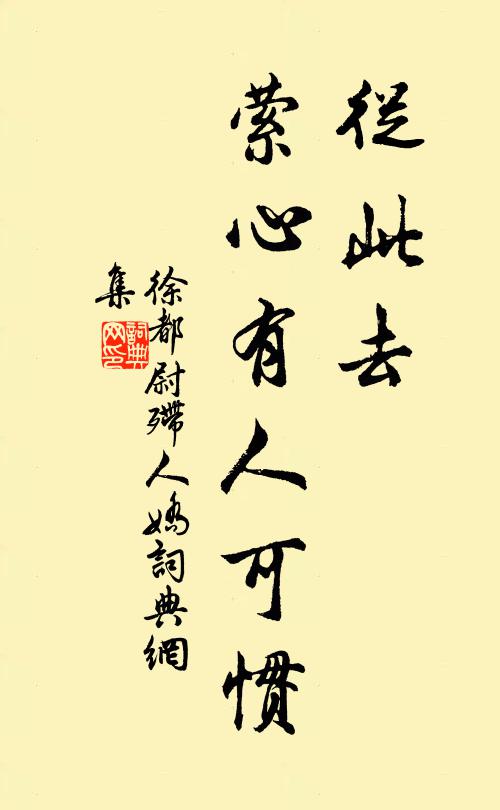 從此去
縈心有人可慣
徐都尉殢人嬌詞典網
集
詞典網印